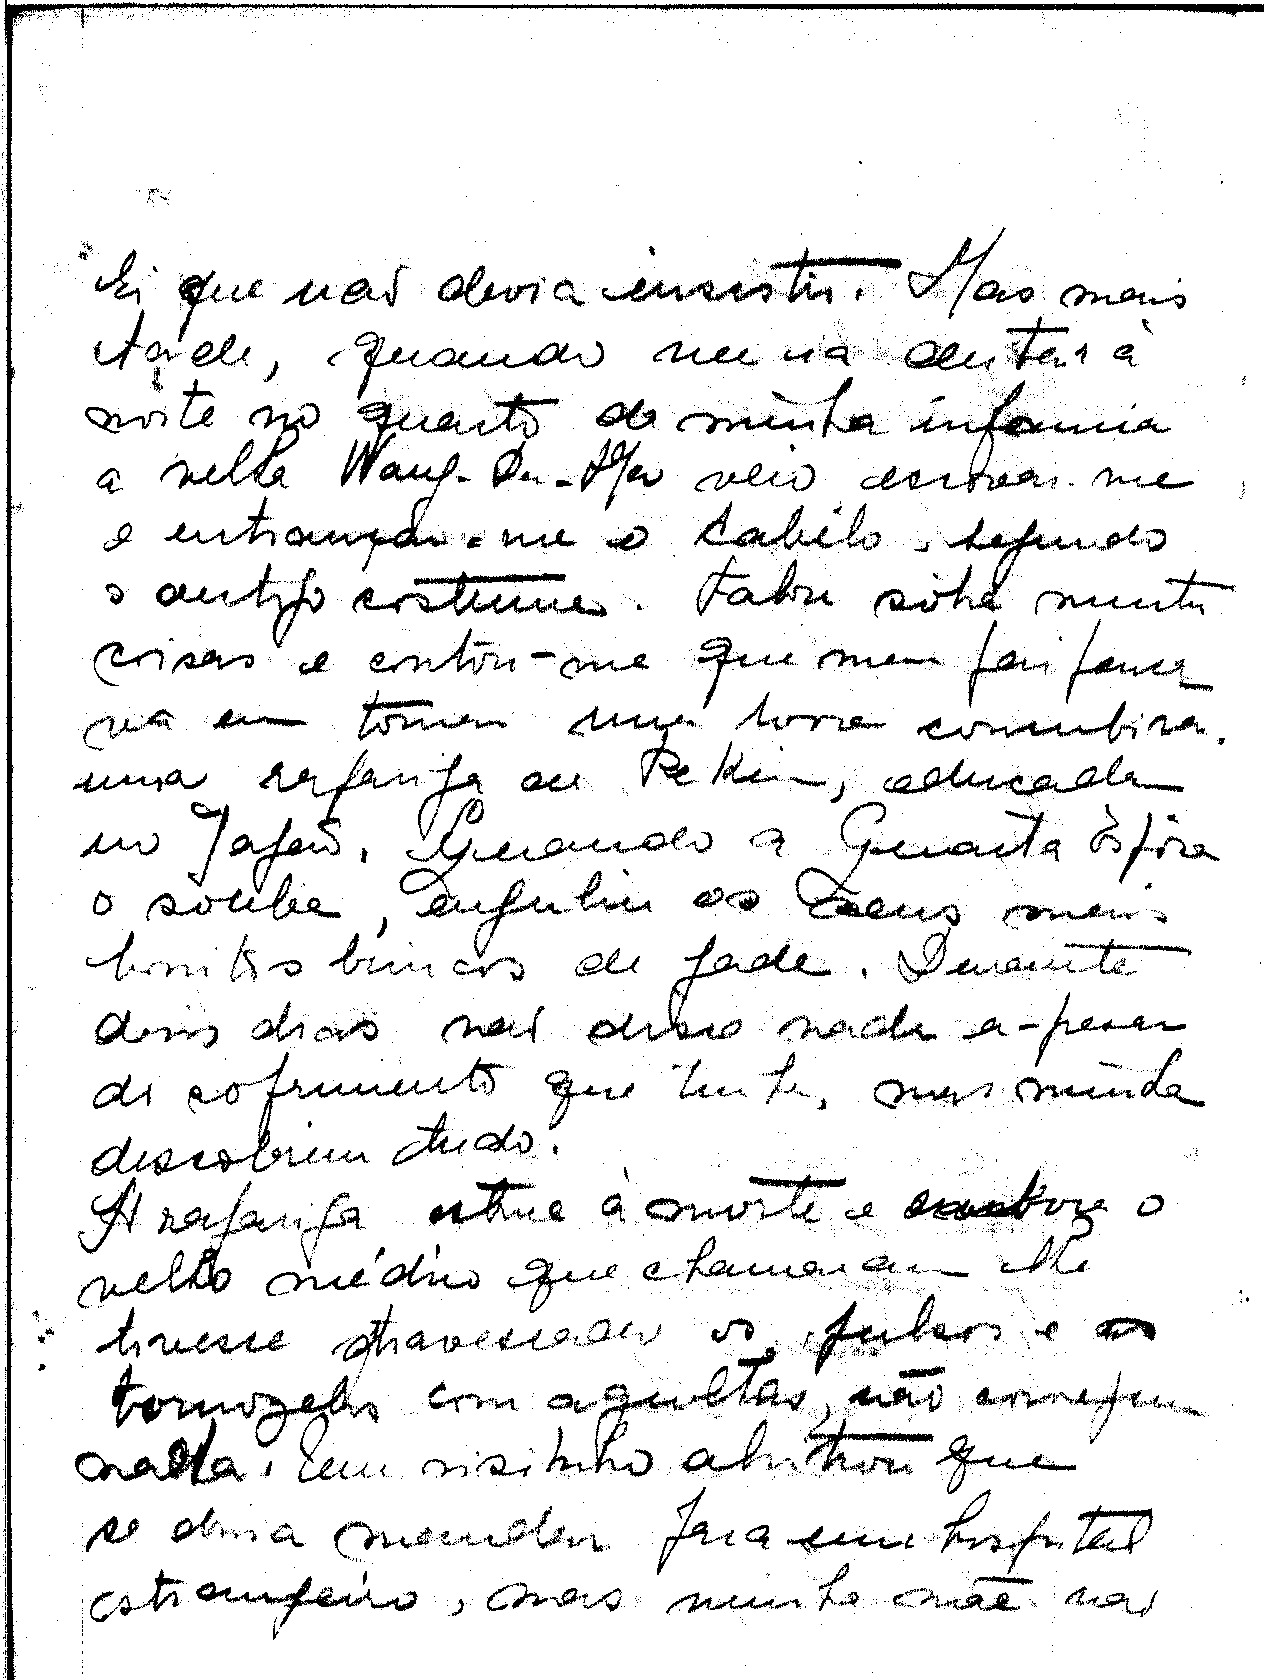 que não devia insistir. Mas mais
tarde, quando me ia deitar à
noite no quarto de minha infancia
a velha Wang-Da-Ma veio escovar-me
e entrançar-me o cabelo, segundo
o antigo costume. Falou sôbre muitas
coisas e contou-me que meu pai pensa
va em tomar uma nova concubina,
uma rapariga de Pekin, educada
no Japão. Quando a Quarta Espôsa
o soube, enguliu os seus mais
bonitos brincos de jade. Durante
dois dias não disse nada a-pesar
do sofrimento que tinha, mas minha
descobriu tudo.
A rapariga esteve à morte e embora o
velho médico que chamaram lhe
tivesse atravessado os pulsos e os
tornozelos com agulhas, não conseguiu
nada. Um visinho alvitrou que
se devia mandar para um hospital
estrangeiro, mas minha mãe não